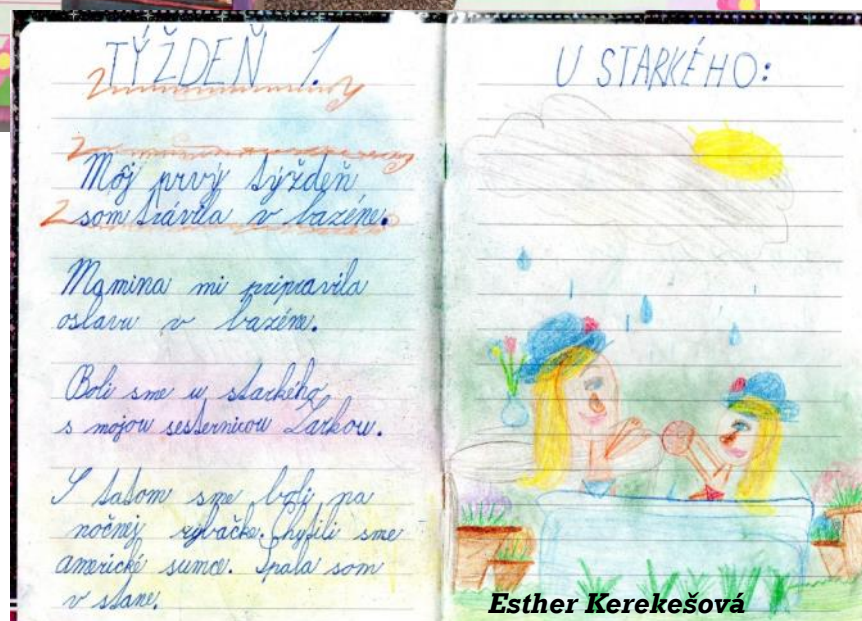 TÝŽDEŇ 1.
Môj prvý týždeň
som trávila v bazéne.
Mamina mi pripravila
oslavu v bazéne.
Boli sme u starkého
s mojou sesternicou Larkou.
S tatom sme boli na
nočnej rybačke. Chytili sme
americké sumce. Spala som
v stane.
U STARKÉHO:
Esther Kerekešová